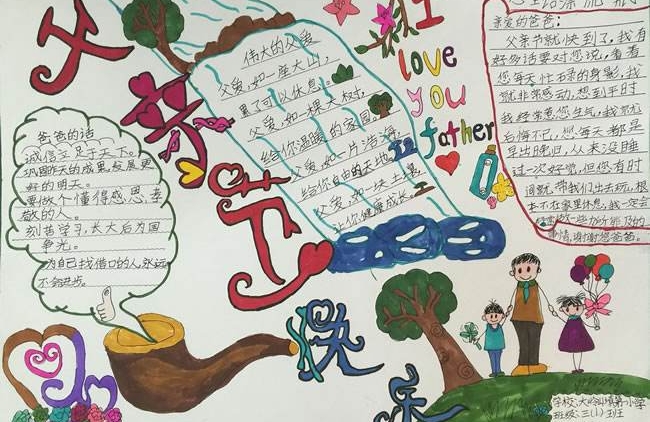 父亲节
快
乐
I
love
you
father
爸爸的话
诚信立足于天下。
巩固昨天的成果,发展更
好的明天。
要做个懂得感恩、孝
敬的人。
刻苦学习,长大后为国
争光。
为自己找借口的人永远
不会进步。
伟大的父爱
父爱,如一座大山,
累了可以休息。
父爱,如一棵大树,
给你温暖的家园。
父爱,如一片沧海,
给你自由的天地。
父爱,如一块土壤,
让你健康成长。
亲爱的爸爸:
父亲节就快到了,我有
好多话要对您说,看着
您每天忙碌的身影,我
就非常感动,想到平时
我经常惹您生气,我就
后悔不已,您每天都是
早出晚归,从来没睡
过一次好觉,但您有时
间就带我们出去玩,根
本不在家里休息,我一定会
事情,谢谢您爸爸。
学校:大岭山镇第一小学
班级:三(1)班